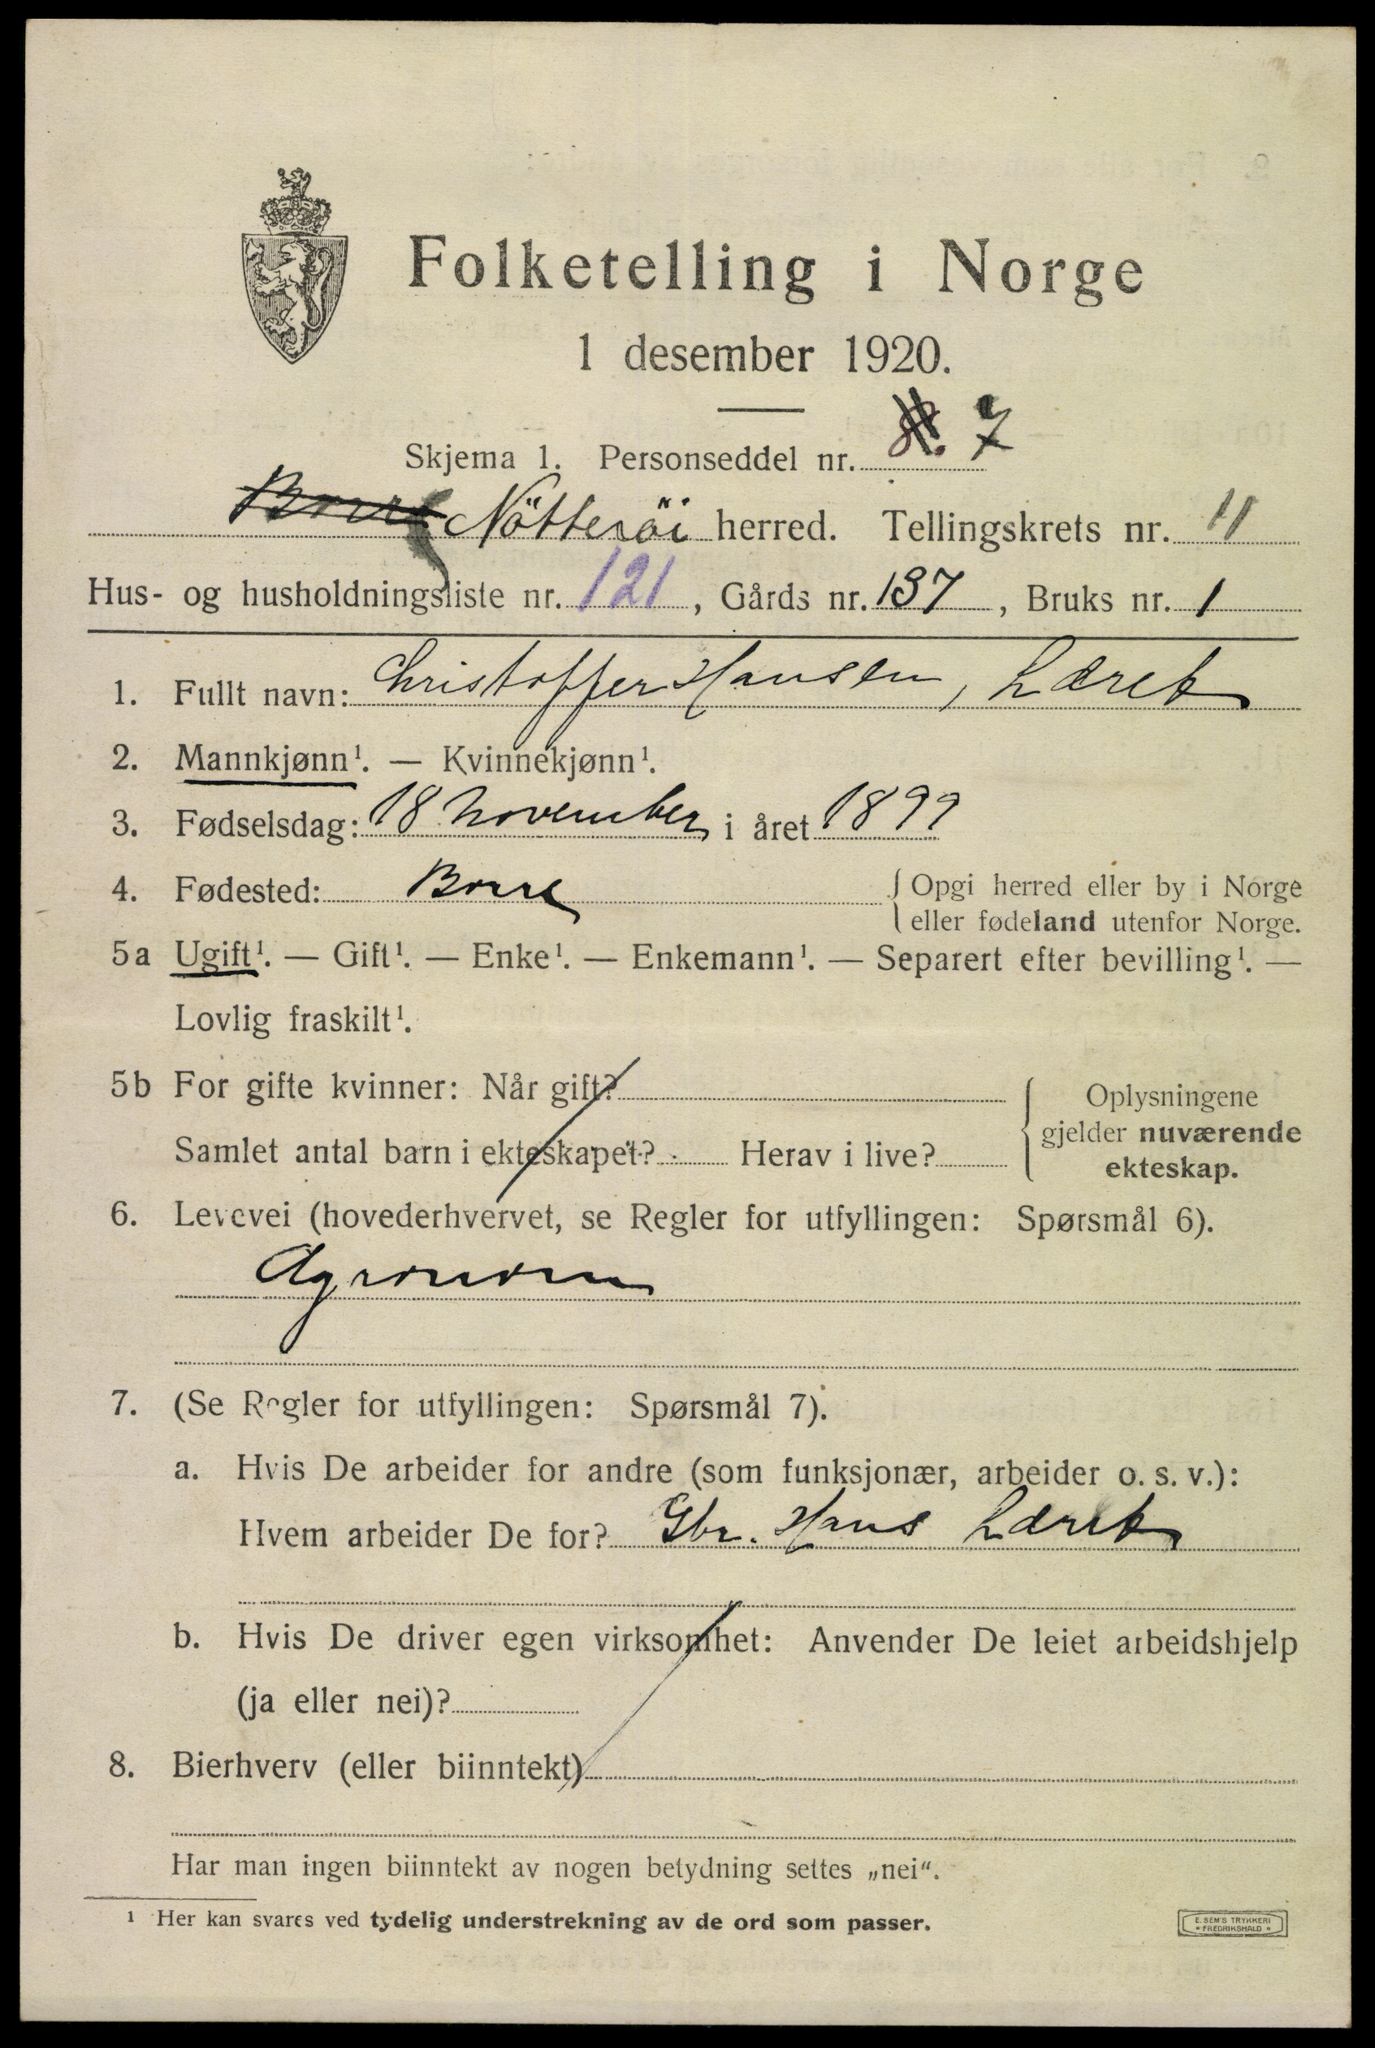 Folketelling i Norge
1 desember 1920.
Skjema 1. Personseddel nr. 8. 7
Borre Nötteröi herred. Tellingskrets nr. 11
Hus- og husholdningsliste nr. 121, Gårds nr. 137, Bruks nr. 1
1. Fullt navn: Christoffer Hansen, Lærek
2. Mannkjønn¹. — Kvinnekjønn¹.
3. Fødselsdag: 18 November i året 1899
4. Fødested: Borre { Opgi herred eller by i Norge
eller fødeland utenfor Norge.
5a Ugift¹. — Gift¹. — Enke¹. — Enkemann¹. — Separert efter bevilling¹. —
Lovlig fraskilt¹.
5b For gifte kvinner: Når gift?
Samlet antal barn i ekteskapet? Herav i live?
{ Oplysningene
gjelder nuværende
ekteskap.
6. Levevei (hovederhvervet, se Regler for utfyllingen: Spørsmål 6).
Agronom
7. (Se Regler for utfyllingen: Spørsmål 7).
a. Hvis De arbeider for andre (som funksjonær, arbeider o. s. v.):
Hvem arbeider De for? Gbr. Hans Lærek
b. Hvis De driver egen virksomhet: Anvender De leiet arbeidshjelp
(ja eller nei)?
8. Bierhverv (eller biinntekt)
Har man ingen biinntekt av nogen betydning settes „nei“.
¹ Her kan svares ved tydelig understrekning av de ord som passer.
E. SEM'S TRYKKERI
* FREDRIKSHALD *